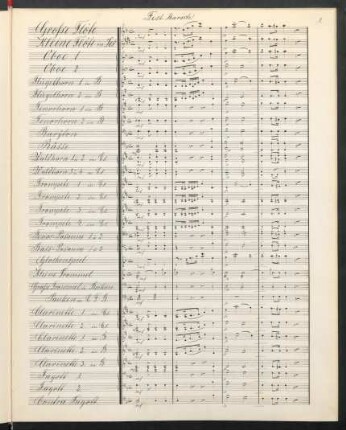 Fest Marsch
Große Flöte
Kleine Flöte in Es
Oboe 1
Oboe 2
Flügelhorn 1 in B
Flügelhorn 2 in B
Tenorhorn 1 in B
Tenorhorn 2 in B
Bariton
Bässe
Waldhorn 1 & 2 in Es
Waldhorn 3 & 4 in Es
Trompete 1 in Es
Trompete 2 in Es
Trompete 3 in Es
Trompete 4 in Es
Bass Posaune 1 & 2
Glockenspiel
Kleine Trommel
Große Trommel u. Becken
Pauken in
Clarinette 1 in Es
Clarinette 2 in Es
Clarinette 1 in B
Clarinette 2 in B
Clarinette 3 in B
Fagott 1
Fagott 2
Contra Fagott